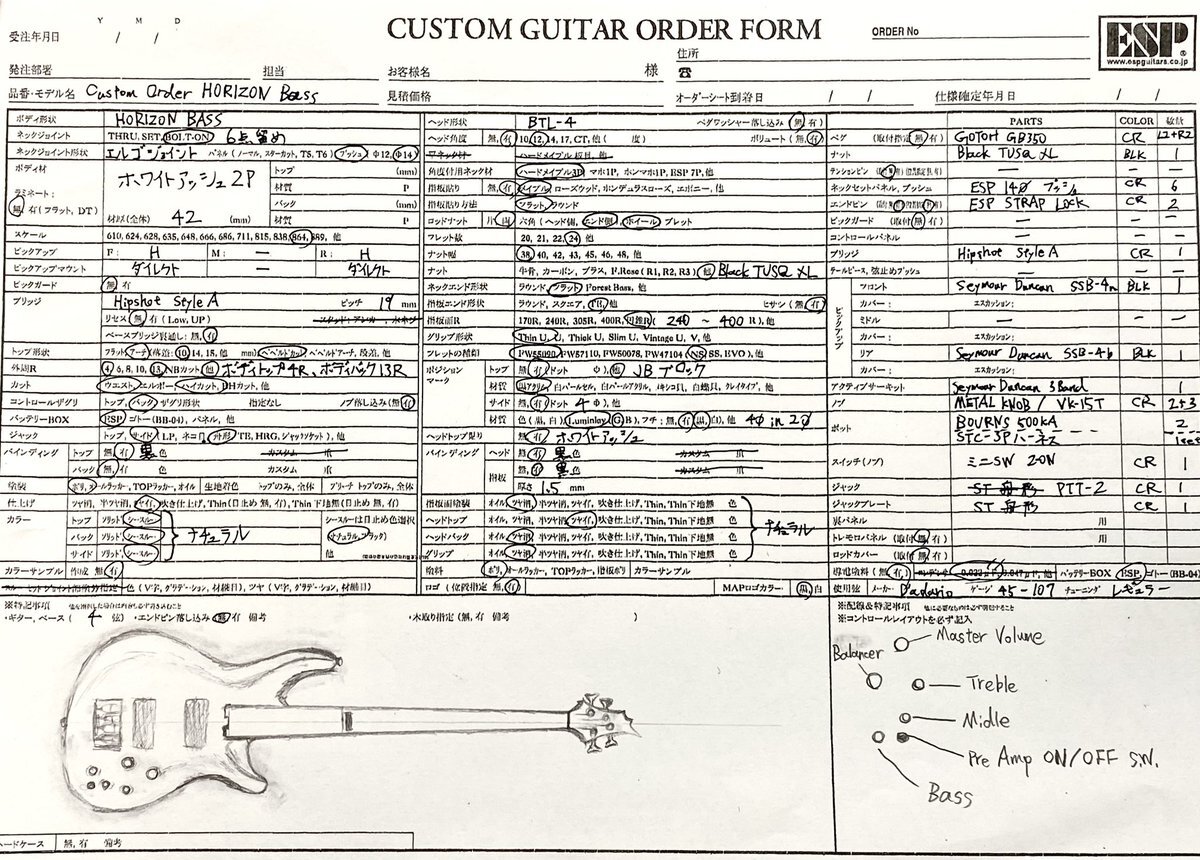 Y M D
CUSTOM GUITAR ORDER FORM
ORDER No
ESP
www.espguitars.co.jp
受注年月日 / /
住所
発注部署 担当 お客様名 様 ☎
品番・モデル名 Custom Order HORIZON Bass 見積価格 オーダーシート到着日 / / 仕様確定年月日 / /
ボディ形状 HORIZON BASS
ネックジョイント THRU, SET, BOLT-ON 6点留め
ネックジョイント形状 エルゴジョイント パネル (ノーマル, スターカット, T5, T6) ブッシュ (Φ12, Φ14)
ボディ材 ホワイトアッシュ2P トップ (mm)
材質 P
ラミネート: 無, 有 (フラット, DT) バック (mm)
材厚(全体) 42 (mm) 材質 P
スケール 610, 624, 628, 635, 648, 666, 686, 711, 815, 838, 864, 889, 他
ピックアップ F: H M: — R: H
ピックアップマウント ダイレクト — ダイレクト
ピックガード 無, 有
ブリッジ Hipshot Style A ピッチ 19 mm
リセス 無, 有 (Low, UP)
ベースブリッジ裏通し: 無, 有
トップ形状 フラット, アーチ (落差: 10, 14, 15, 他 mm) ベベルドカット, ベベルドアーチ, 段差, 他
外周R 4, 6, 8, 10, 13, NBカット, 他 ボディトップ4R、ボディバック13R
カット ウエスト, エルボー, ハイカット, DHカット, 他
コントロールザグリ トップ, バック ザグリ形状 指定なし ノブ落し込み (無, 有)
バッテリーBOX ESP, ゴトー(BB-04), パネル, 他
ジャック トップ, サイド (LP, ネコ目, 舟形, TE, HRG, ジャックソケット), 他
バインディング トップ 無, 有 黒 色 カスタム 爪
バック 無, 有 色 カスタム 爪
塗装 ポリ, オールラッカー, TOPラッカー, オイル 生地着色 トップのみ, 全体 ブリーチ トップのみ, 全体
仕上げ ツヤ消, 半ツヤ消, ツヤ有, 吹き仕上げ, Thin (目止め 無, 有), Thin 下地無 (目止め 無, 有)
カラー トップ ソリッド, シースルー ナチュラル シースルーは目止め色選択
バック ソリッド, シースルー (ナチュラル, ブラック)
サイド ソリッド, シースルー 他
カラーサンプル 作成 無, 有
ヘッド形状 BTL-4 ペグワッシャー落し込み (無, 有)
ヘッド角度 無, 有 10, 12, 14, 17, CT, 他 ( 度) ボリュート (無, 有)
角度付用ネック材 ハードメイプル3P, マホ1P, ホンマホ1P, ESP 7P, 他
指板貼り 無, 有 メイプル, ローズウッド, ホンデュラスローズ, エボニー, 他
指板貼り方法 フラット, ラウンド
ロッドナット 片, 両 六角 (ヘッド側, エンド側, ホイール) ブレット
フレット数 20, 21, 22, 24, 他
ナット幅 38, 40, 42, 43, 45, 46, 48, 他
ナット 牛骨, カーボン, ブラス, F.Rose (R1, R2, R3), 他 Black TUSQ XL
ネックエンド形状 ラウンド, フラット, Forest Bass, 他
指板エンド形状 ラウンド, スクエア, TR, 他 ヒサシ (無, 有)
指板面R 170R, 240R, 305R, 400R, 円錐R (240 ~ 400 R), 他
グリップ形状 Thin U, U, Thick U, Slim U, Vintage U, V, 他
フレットの種類 FW55090, FW57110, FW50078, FW47104 (NS, SS, EVO), 他
ポジションマーク トップ 無, 有 (ドット Φ), 他 JBブロック
材質 黒アクリル, 白パールセル, 白パールアクリル, メキシコ貝, 白蝶貝, クレイタイプ, 他
サイド 無, 有 (ドット 4 Φ), 他
材質 色 (黒, 白), Luminlay (G, B), フチ: 無, 有 (黒, 白), 他 4Φ in 2Φ
ヘッドトップ貼り 無, 有 ホワイトアッシュ
バインディング ヘッド 無, 有 黒 色 カスタム 爪
指板 無, 有 黒 色 カスタム 爪
厚さ 1.5 mm
指板面塗装 オイル, ツヤ消, 半ツヤ消, ツヤ有, 吹き仕上げ, Thin, Thin下地無 色
ヘッドトップ オイル, ツヤ消, 半ツヤ消, ツヤ有, 吹き仕上げ, Thin, Thin下地無 色 ナチュラル
ヘッドバック オイル, ツヤ消, 半ツヤ消, ツヤ有, 吹き仕上げ, Thin, Thin下地無 色
グリップ オイル, ツヤ消, 半ツヤ消, ツヤ有, 吹き仕上げ, Thin, Thin下地無 色
塗料 ポリ, オールラッカー, TOPラッカー, 指板ポリ カラーサンプル
ロゴ (位置指定 無, 有) MAPロゴカラー 黒, 白
PARTS COLOR 個数
ペグ (取付指定 無, 有) GOTOH GB350 CR L2+R2
ナット Black TUSQ XL BLK 1
テンションピン —
ネックセットパネル, ブッシュ ESP 14Φ ブッシュ CR 6
エンドピン ESP STRAP LOCK CR 2
ピックガード (取付 無, 有) — — —
コントロールパネル — — —
ブリッジ Hipshot Style A CR 1
テールピース, 弦止めブッシュ — — —
ピックアップ フロント Seymour Duncan SSB-4n BLK 1
カバー: エスカッション:
ミドル — — —
カバー: エスカッション:
リア Seymour Duncan SSB-4b BLK 1
カバー: エスカッション:
アクティブサーキット Seymour Duncan 3Band 1
ノブ METAL KNOB / VK-15T CR 2+3
ポット BOURNS 500kA 2
STC-3P ハーネス 1set
スイッチ(ノブ) ミニSW 2ON CR 1
ジャック PTT-2 CR 1
ジャックプレート ST 舟形 CR 1
裏パネル 用
トレモロパネル (取付 無, 有) 用
ロッドカバー (取付 無, 有)
導電塗料 (無, 有) バッテリーBOX ESP, ゴトー(BB-04)
使用弦 メーカー D'adario ゲージ 45-107 チューニング レギュラー
※特記事項
・ギター, ベース (4 弦) ・エンドピン落し込み 無, 有 備考 ・木取り指定 (無, 有 備考 )
※配線&特記事項
※コントロールレイアウトを必ず記入
Master Volume
Balancer
Treble
Midle
Pre Amp ON/OFF SW.
Bass
ハードケース 無, 有 備考